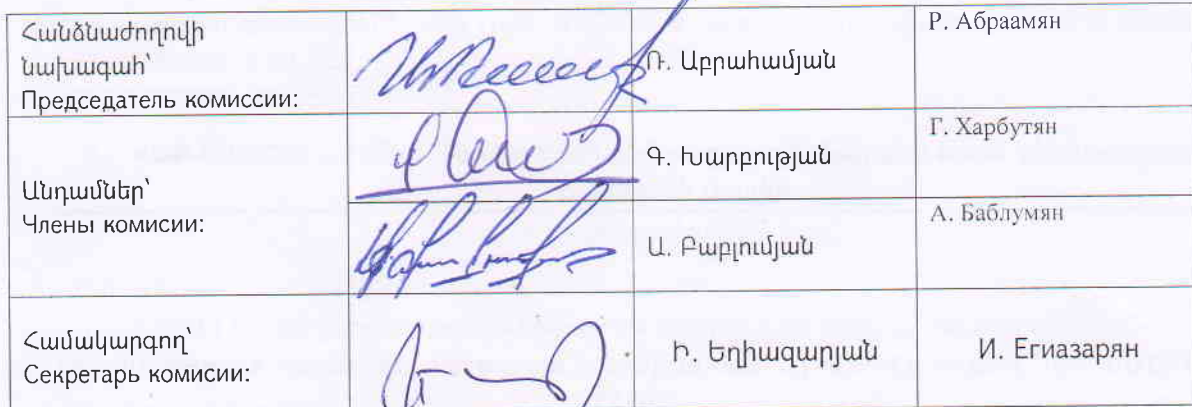 Հանձնաժողովի
նախագահ՝
Председатель комиссии:
Ռ. Աբրահամյան
Р. Абраамян
Անդամներ՝
Члены комисии:
Գ. Խարբության
Г. Харбутян
Ա. Բաբլումյան
А. Баблумян
Համակարգող՝
Секретарь комисии:
Ի. Եղիազարյան
И. Егиазарян